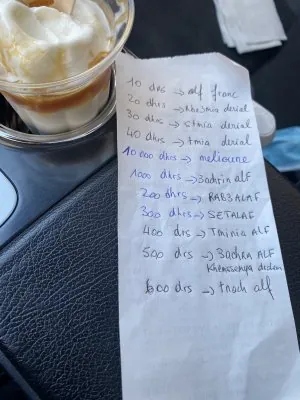 10 drs → alf franc
20 dhrs → Rba3mia derial
30 dhrs → stmia derial
40 drs → tmia derial
10 000 dhrs → melioune
1000 dhrs → 3achrin alf
200 dhrs → RAB3ALAF
300 dhrs → SETALAF
400 drs → Tminia ALF
500 drs → 3achra ALF
600 drs → tnach alf